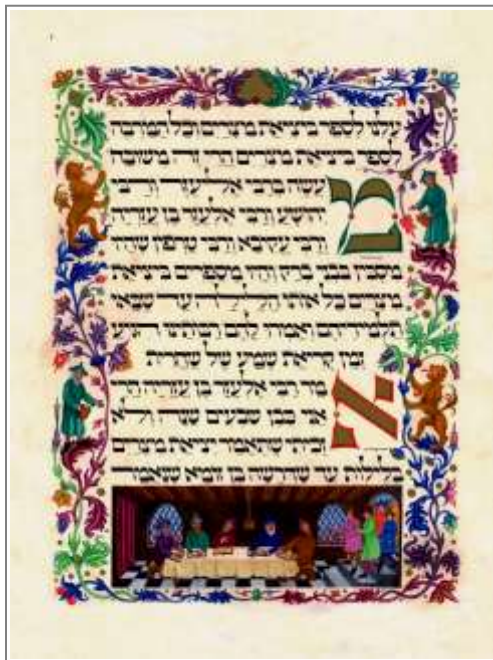 עלנו לספר ביציאת מצרים וכל המרבה
לספר ביציאת מצרים הרי זה משובח
מעשה ברבי אליעזר ורבי
יהושע ורבי אלעזר בן עזריה
ורבי עקיבא ורבי טרפון שהיו
מסבין בבני ברק והיו מספרים ביציאת
מצרים כל אותו הלילה עד שבאו
תלמידיהם ואמרו להם רבותנו הגיע
זמן קריאת שמע של שחרית
אמר רבי אלעזר בן עזריה הרי
אני כבן שבעים שנה ולא
זכיתי שתאמר יציאת מצרים
בלילות עד שדרשה בן זומא שנאמר